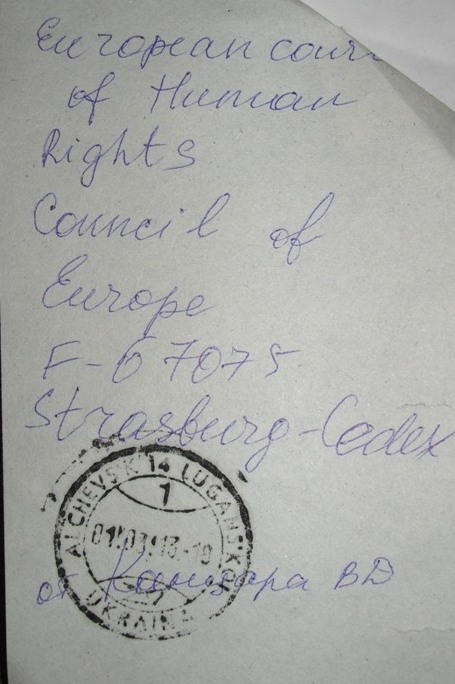 European cour
of Human
Rights
Council of
Europe
F-67075
Strasburg-Cedex
ALCHEVS'K 14 LUGANS'KA
1
UKRAINA
от ВD